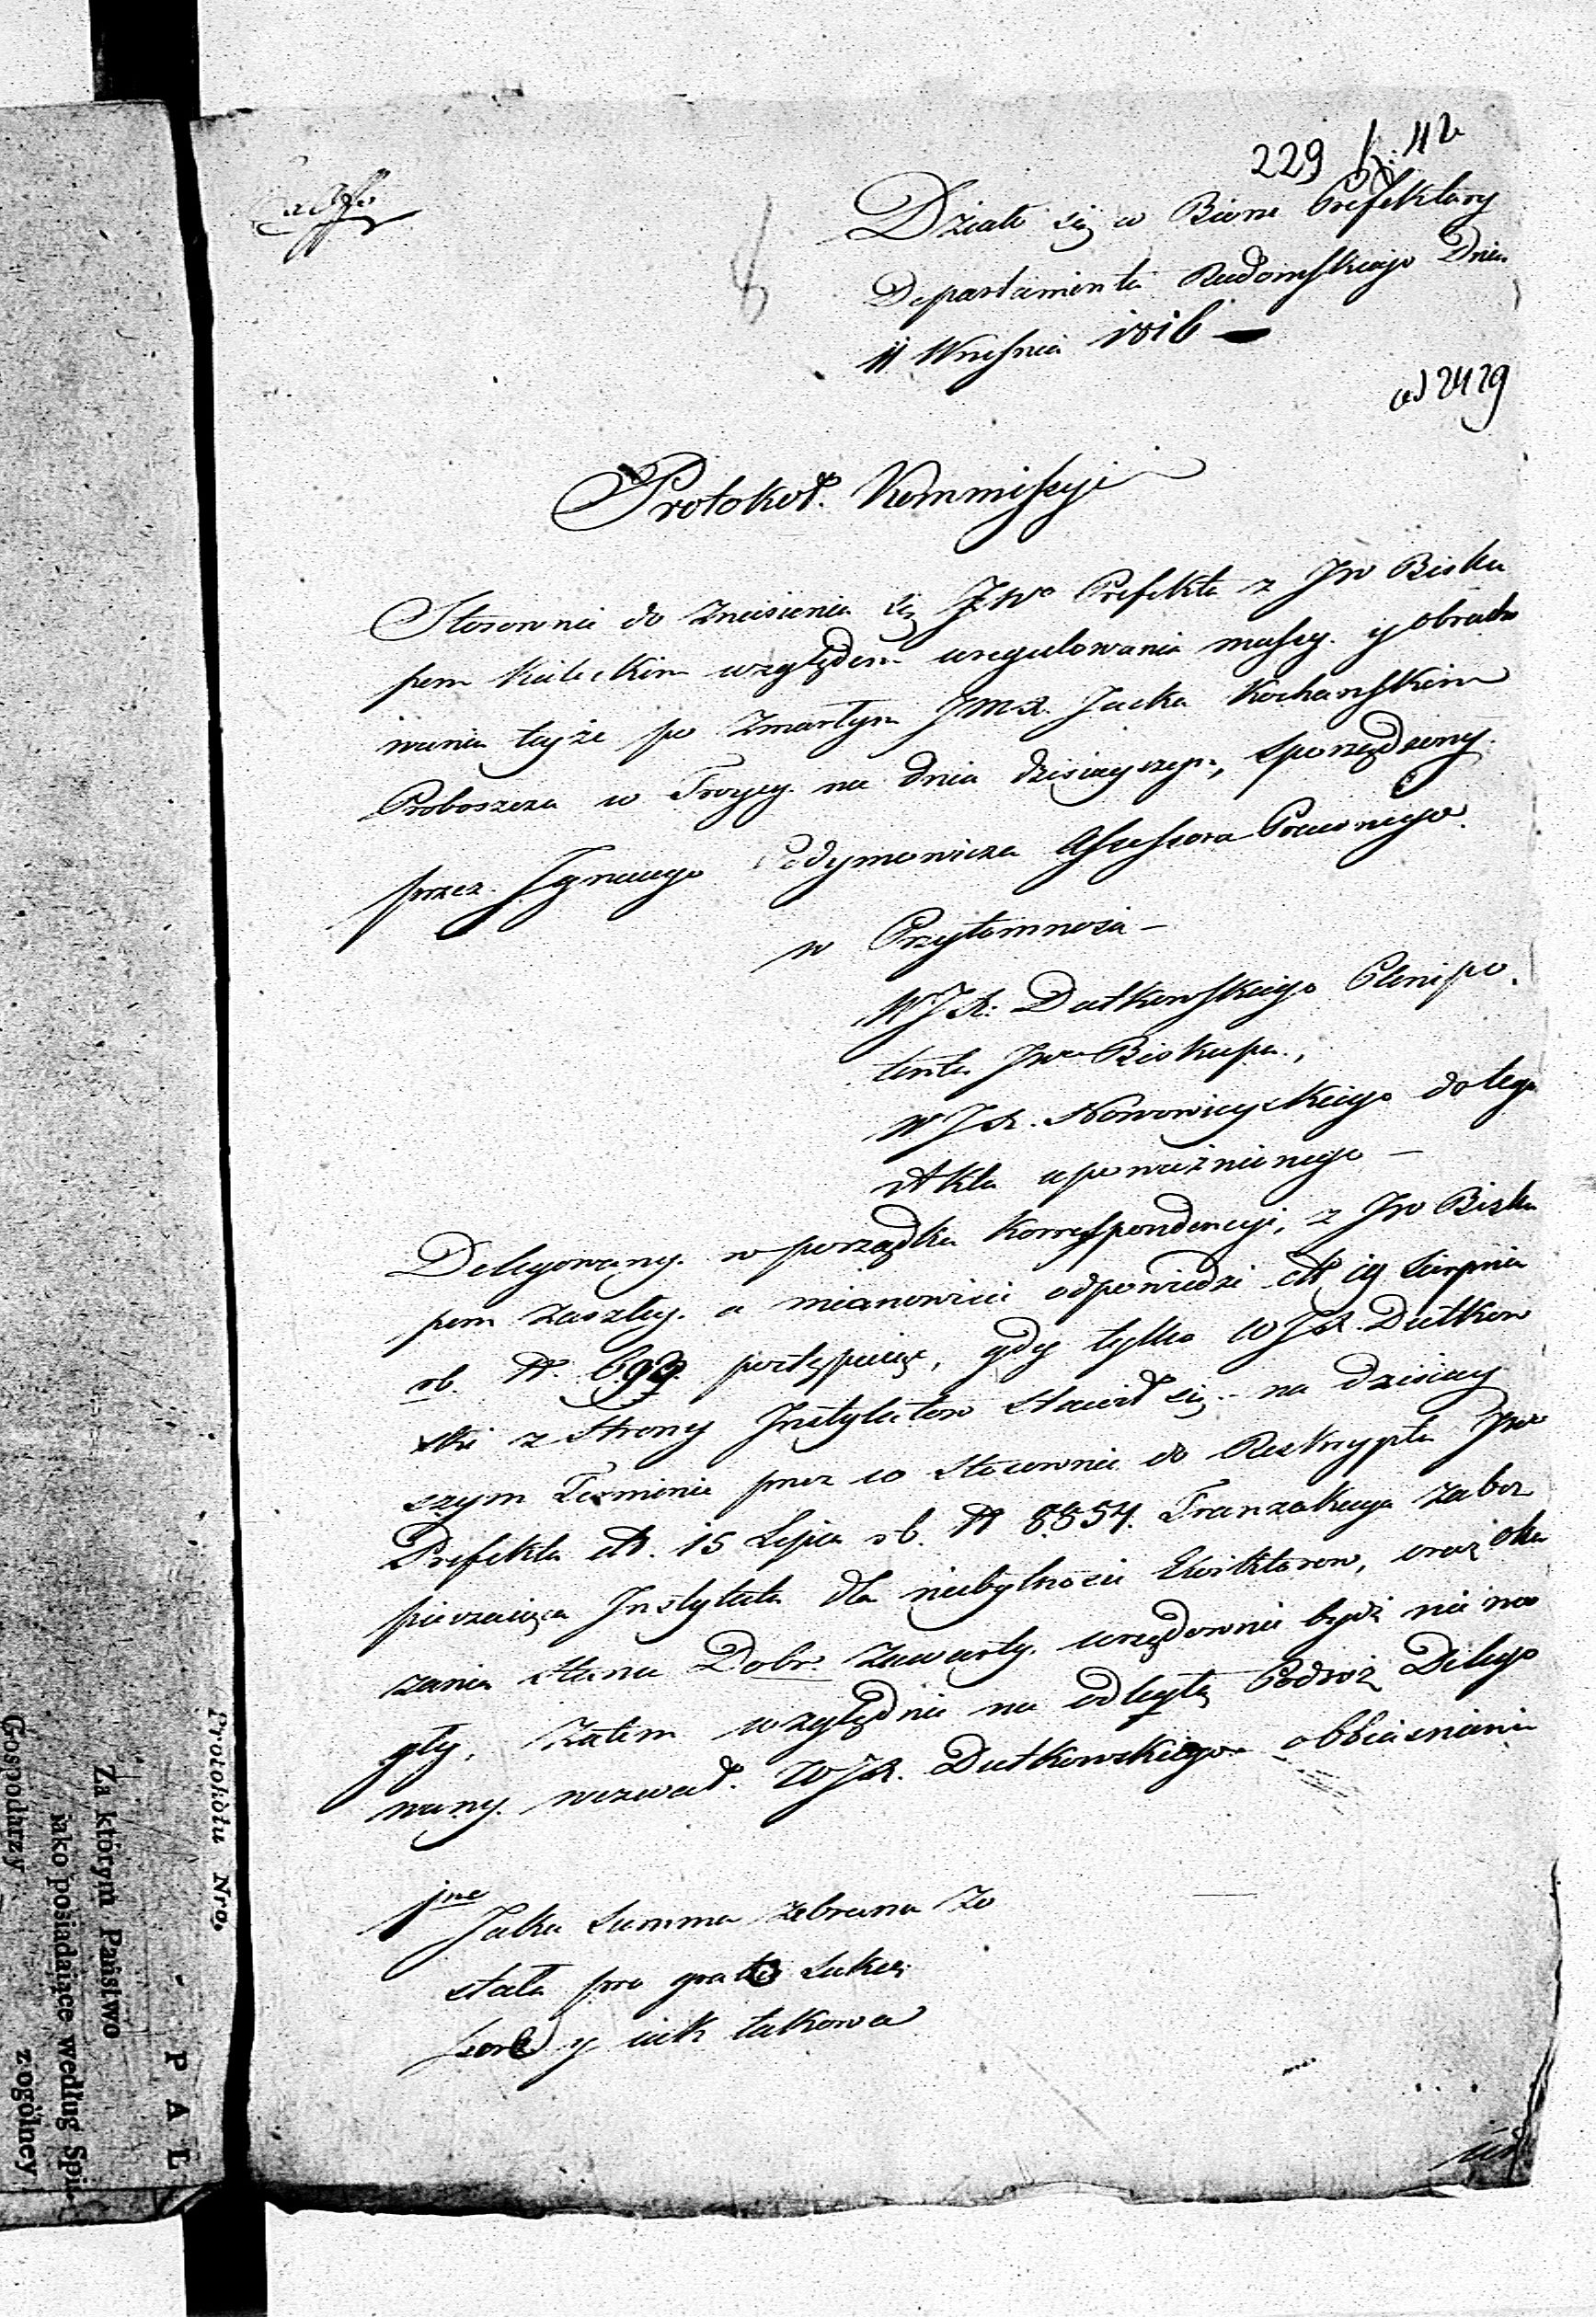 229
Działo się w Biorze Prefektury
Departamentu Radomskiego Dnia
11 Wrzesnia 1816
ad 2429
Protokoł Kommissyi
Stosownie do Zniesienia się JWo Prefekta z JW Bisku
pem Kieleckim względem uregulowania massy y obracho
wania teyże po Zmarłym JMX. Jacku Kochanskim
Proboszczu w Troycy na dniu dzisieyszym, sporządzony
przez Ignacego Podymowicza Assessora Prawnego
w Przytomnosci
WJX. Dutkowskiego Plenipo
tenta JWo Biskupa,
WJX. Nowowieyskiego do tego
Aktu upoważnionego
Delegowany w porządku Korrespondencyi, z JW Bisku
pem zaszłey a mianowicie odpowiedzi 19 Sierpnia
rb. N. 693 postępuiąc, gdy tylko WJX. Dutkow
ski z Strony Instytutow stawił się na dzisiey
szym Terminie przez co stosownie do Reskryptu JWo
Prefekta 15 Lipca rb. N 8854. Tranzakcya zabez
pieczaiąca Instytuta dla niebytnosci Ewiktorow, oraz oka
zania stanu Dobr zawarty urzędownie bydź nie mo
gły, Zatem względnie na odległą Podroż Delego
wany wezwał WJX. Dutkowskiego obbiasnienia
1mo Jaka Summa zebrana zo
stała pro gratis Sukces
sora y iak takowa
Protokòłu Nro.
PAŁ
Za którym Państwo
iako posiadaiące według Spi-
Gospodarzy z ogólney